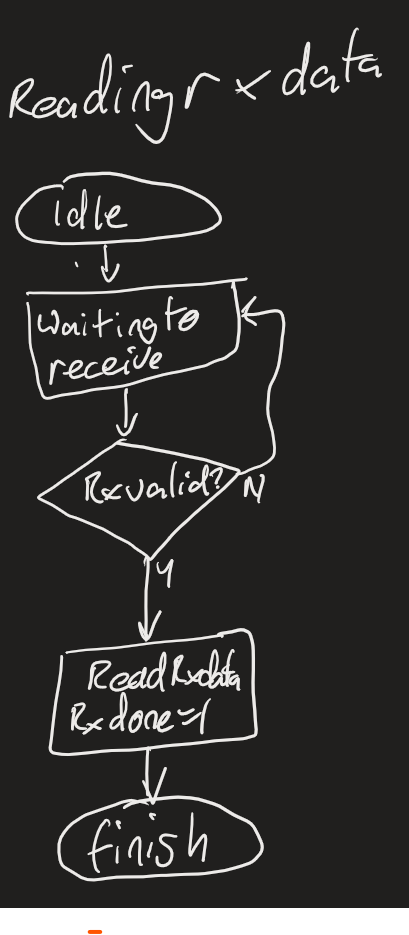 Reading rx data
idle
Waiting to
receive
Rx valid?
N
Y
Read Rxdata
Rx done=1
finish